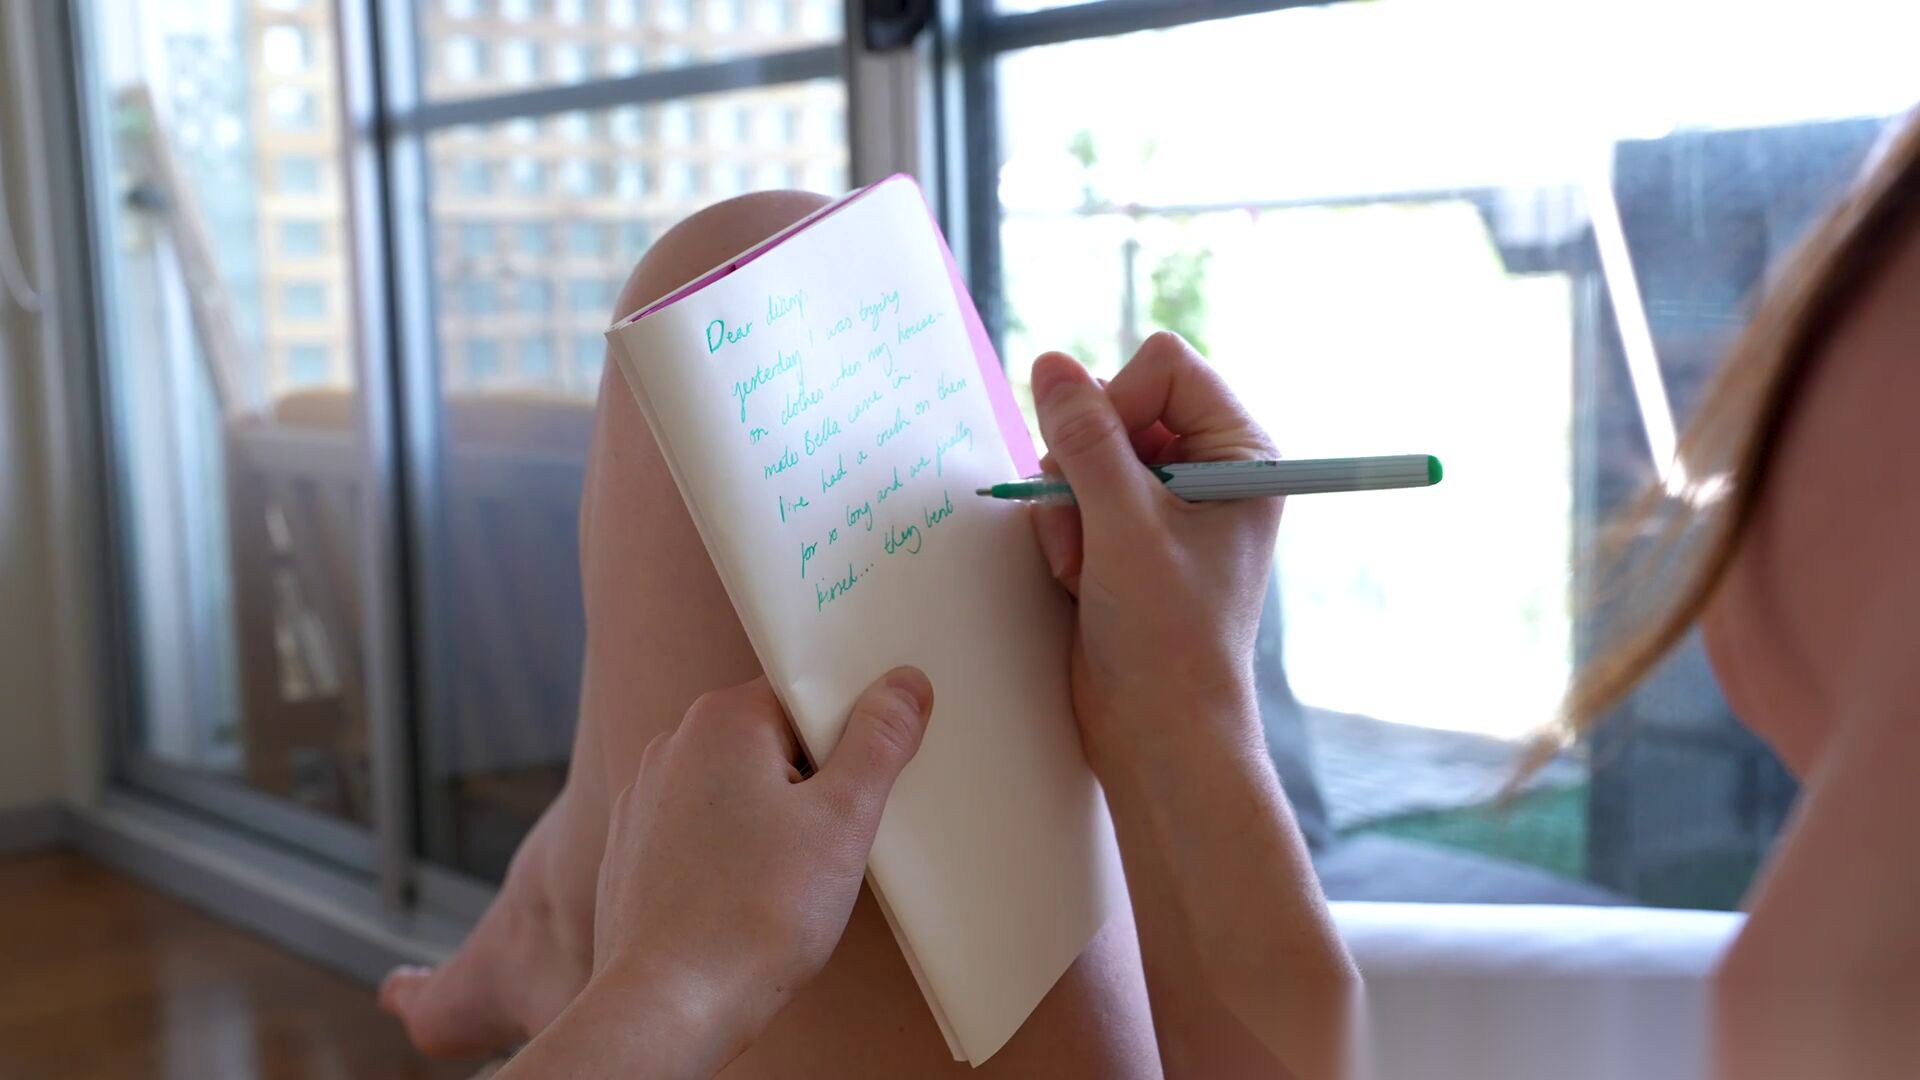 Dear diary,
yesterday I was trying
on clothes when my house-
mate Bella came in.
I've had a crush on them
for so long and we finally
kissed... they bent